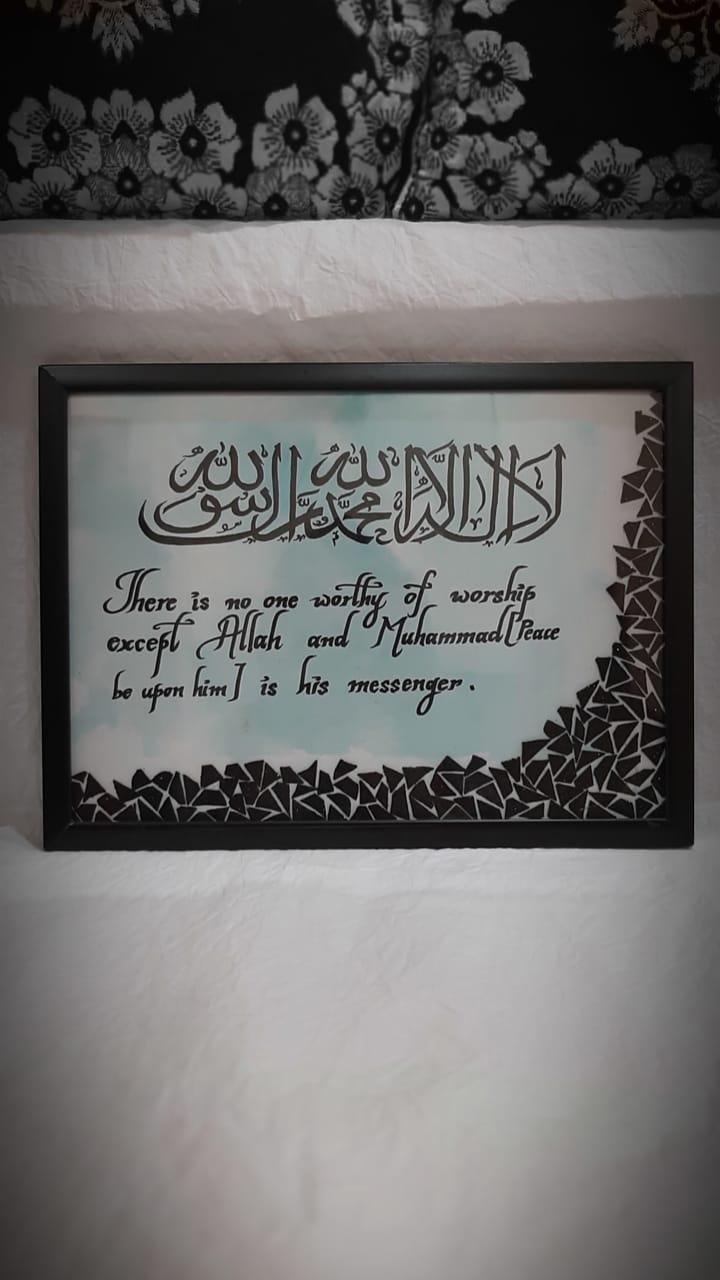 لا اله الا الله محمد رسول الله
There is no one worthy of worship
except Allah and Muhammad[Peace
be upon him] is his messenger.